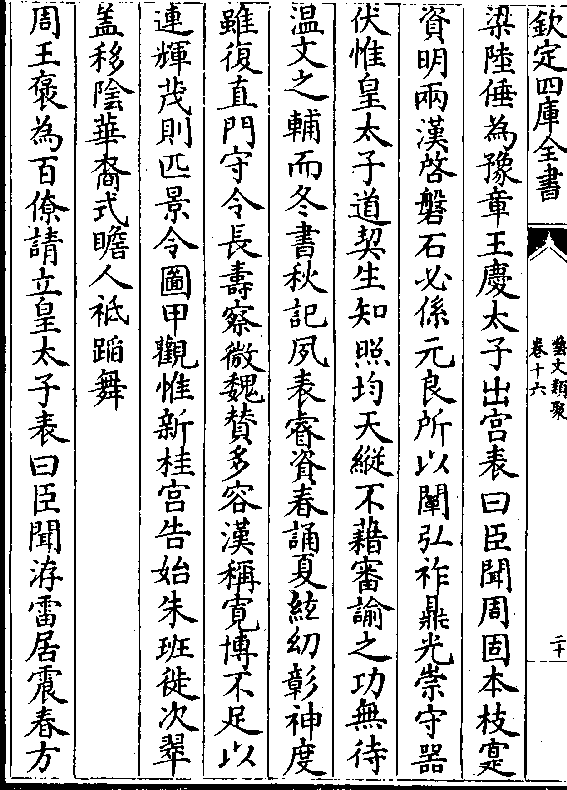 欽定四庫全書
藝文類聚
卷十六
二十
梁陸倕為豫章王慶太子出宫表曰臣聞周固本枝寔
資明兩漢啓磐石必係元良所以闡弘祚鼎光崇守器
伏惟皇太子道契生知照均天縱不藉審諭之功無待
温文之輔而冬書秋記夙表睿資春誦夏絃幼彰神度
雖復直門守令長壽察微魏贊多容漢稱寛博不足以
連輝茂則匹景令圖甲觀惟新桂宫告始朱班徙次翠
盖移陰華裔式瞻人祗蹈舞
周王褒為百僚請立皇太子表曰臣聞洊雷居震春方